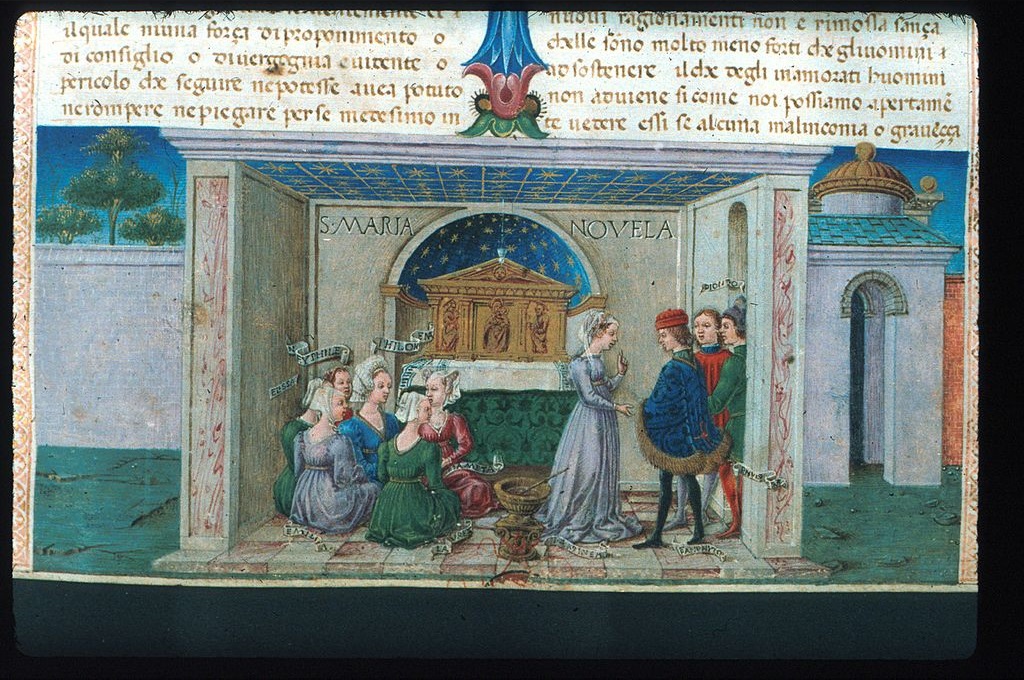 ilquale niuna força di proponimento o
di consiglio o di vergogna evidente o
pericolo che seguire ne potesse avea potuto
ne rompere ne piegare per se medesimo in
nuovi ragionamenti non e rimossa sança
chelle sono molto meno forti che gliuomini a
sostenere il che degli inamorati huomini
non adviene si come noi possiamo apertamē
te vedere essi se alcuna malinconia o graveçça
S·MARIA NOVELA
PHILE
PHILOM